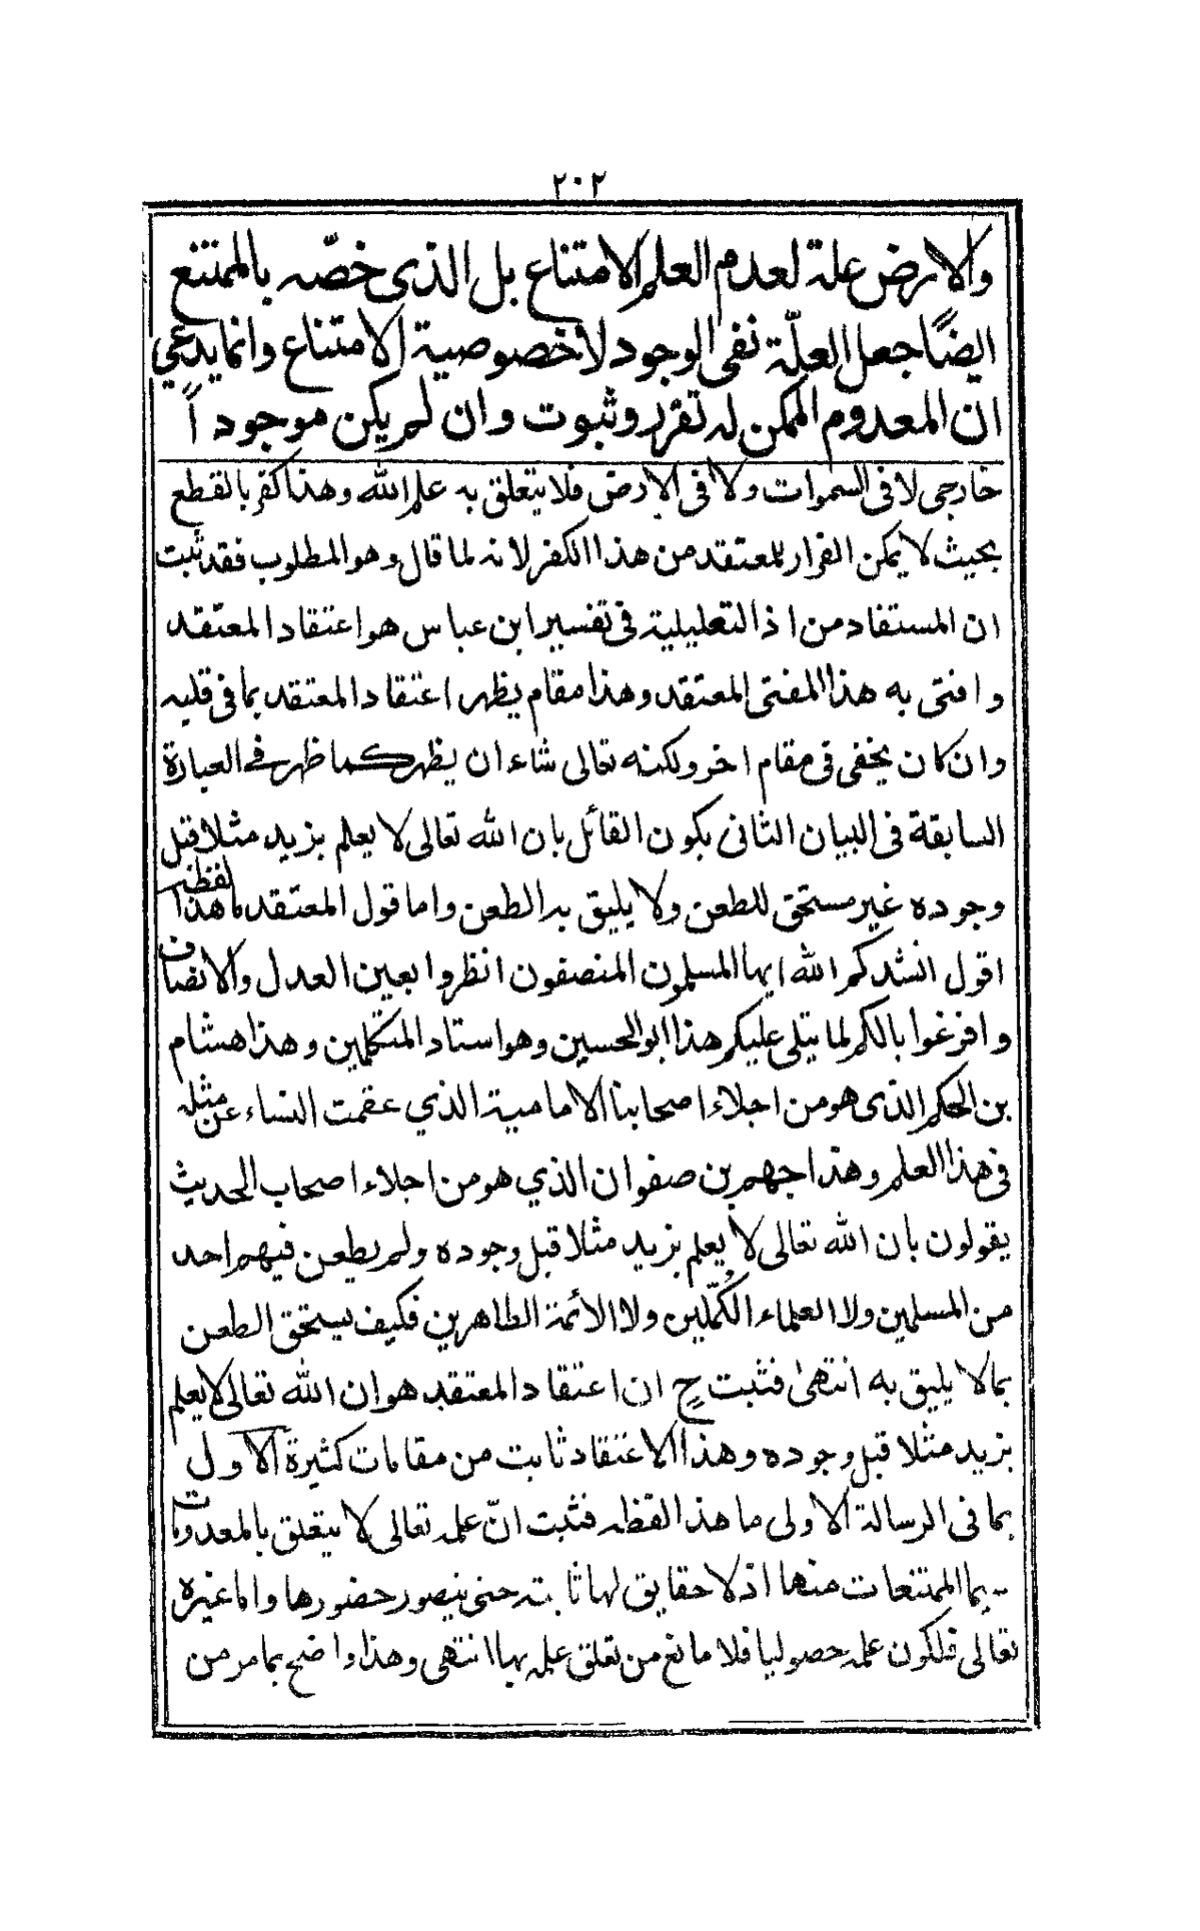 ٢٠٢
والارض علة لعدم العلم الامتناع بل الذي خصّه بالممتنع
ايضًا جعل العلّة نفى الوجود لا خصوصية الامتناع وانما يدعي
ان المعدوم الممكن له تقرر وثبوت وان لم يكن موجود اً
خارجى لا فى السموات ولا فى الارض فلا يتعلق به علم الله وهذا كفر بالقطع
بحيث لا يمكن الفرار للمعتقد من هذا الكفر لانه لما قال وهو المطلوب فقد ثبت
ان المستفاد من اذ التعليلية فى تفسير ابن عباس هو اعتقاد المعتقد
وافتى به هذا المفتى المعتقد وهذا مقام يظهر اعتقاد المعتقد بما فى قلبه
وان كان يخفى فى مقام اخر ولكنه تعالى شاء ان يظهر كما ظهر فى العبارة
السابقة فى البيان الثانى بكون القائل بان الله تعالى لا يعلم بزيد مثلا قبل
وجوده غير مستحق للطعن ولا يليق به الطعن واما قول المعتقد ما هذا لفظه
اقول انشدكم الله ايها المسلمون المنصفون انظروا بعين العدل والانصاف
وافرغوا بالكم لما يتلى عليكم هذا ابو الحسين وهو استاد المتكلمين وهذا هشام
بن الحكم الذى هو من اجلاء اصحابنا الامامية الذي عقمت النساء عن مثله
فى هذا العلم وهذا جهم بن صفوان الذي هو من اجلاء اصحاب الحديث
يقولون بان الله تعالى لا يعلم بزيد مثلا قبل وجوده ولم يطعن فيهم احد
من المسلمين ولا العلماء الكُمّلين ولا الائمة الطاهرين فكيف يستحق الطعن
بما لا يليق به انتهى فثبت ح ان اعتقاد المعتقد هو ان الله تعالى لا يعلم
بزيد مثلا قبل وجوده وهذا الاعتقاد ثابت من مقامات كثيرة الاول
بما فى الرسالة الاولى ما هذا لفظه فثبت انّ علمه تعالى لا يتعلق بالمعدومات
سيما الممتنعات منها اذ لا حقايق لها ثابته حتى يتصور حضورها واما غيره
تعالى فلكون علمه حصوليا فلا مانع من تعلق علمه بها انتهى وهذا واضح بما مر من